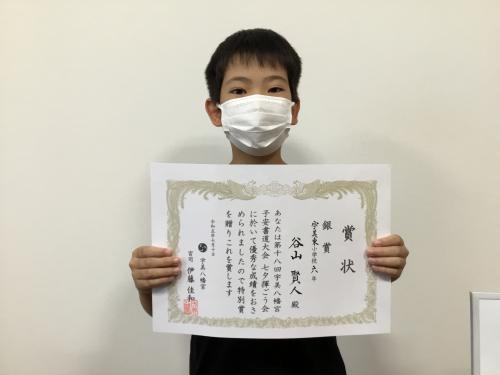 賞状
銀賞
宇美東小学校 六年
谷山 賢人 殿
あなたは第十八回宇美八幡宮
子安書道大会 七夕揮ごう会
に於いて優秀な成績をおさ
められましたので特別賞
を贈りこれを賞します
令和五年七月十日
宇美八幡宮
宮司 伊藤 佳和